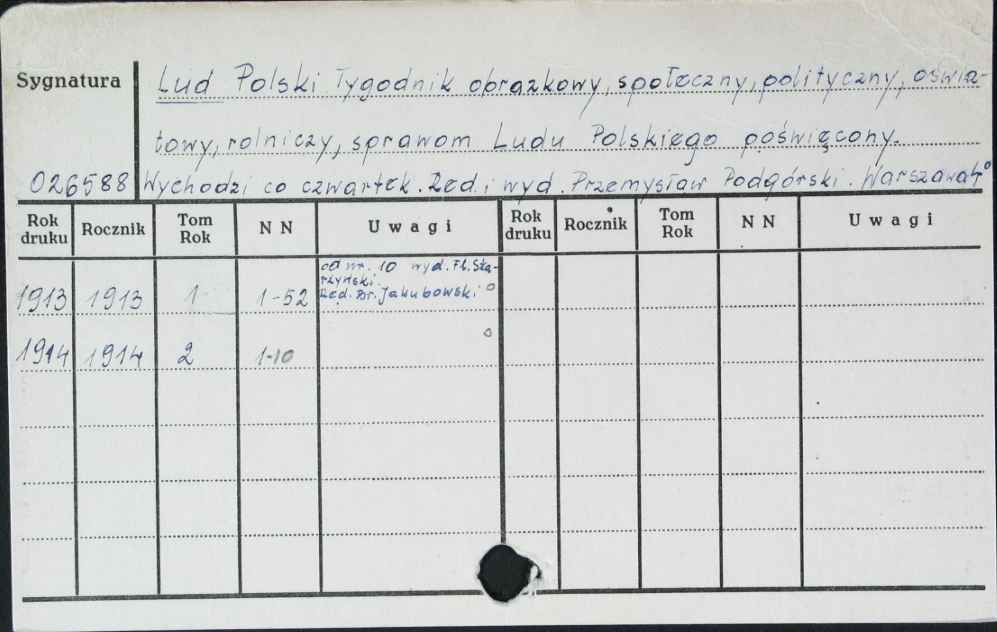 Sygnatura
Lud Polski Tygodnik obrazkowy, społeczny, polityczny, oświa-
towy, rolniczy, sprawom Ludu Polskiego poświęcony.
026588 Wychodzi co czwartek. Red. i wyd. Przemysław Podgórski. Warszawa 4°
Rok druku Rocznik Tom Rok N N Uwagi Rok druku Rocznik Tom Rok N N Uwagi
od nr. 10 wyd. Fl. Sta-
rzyński
1913 1913 1 1-52 Red. Br. Jakubowski
1914 1914 2 1-10